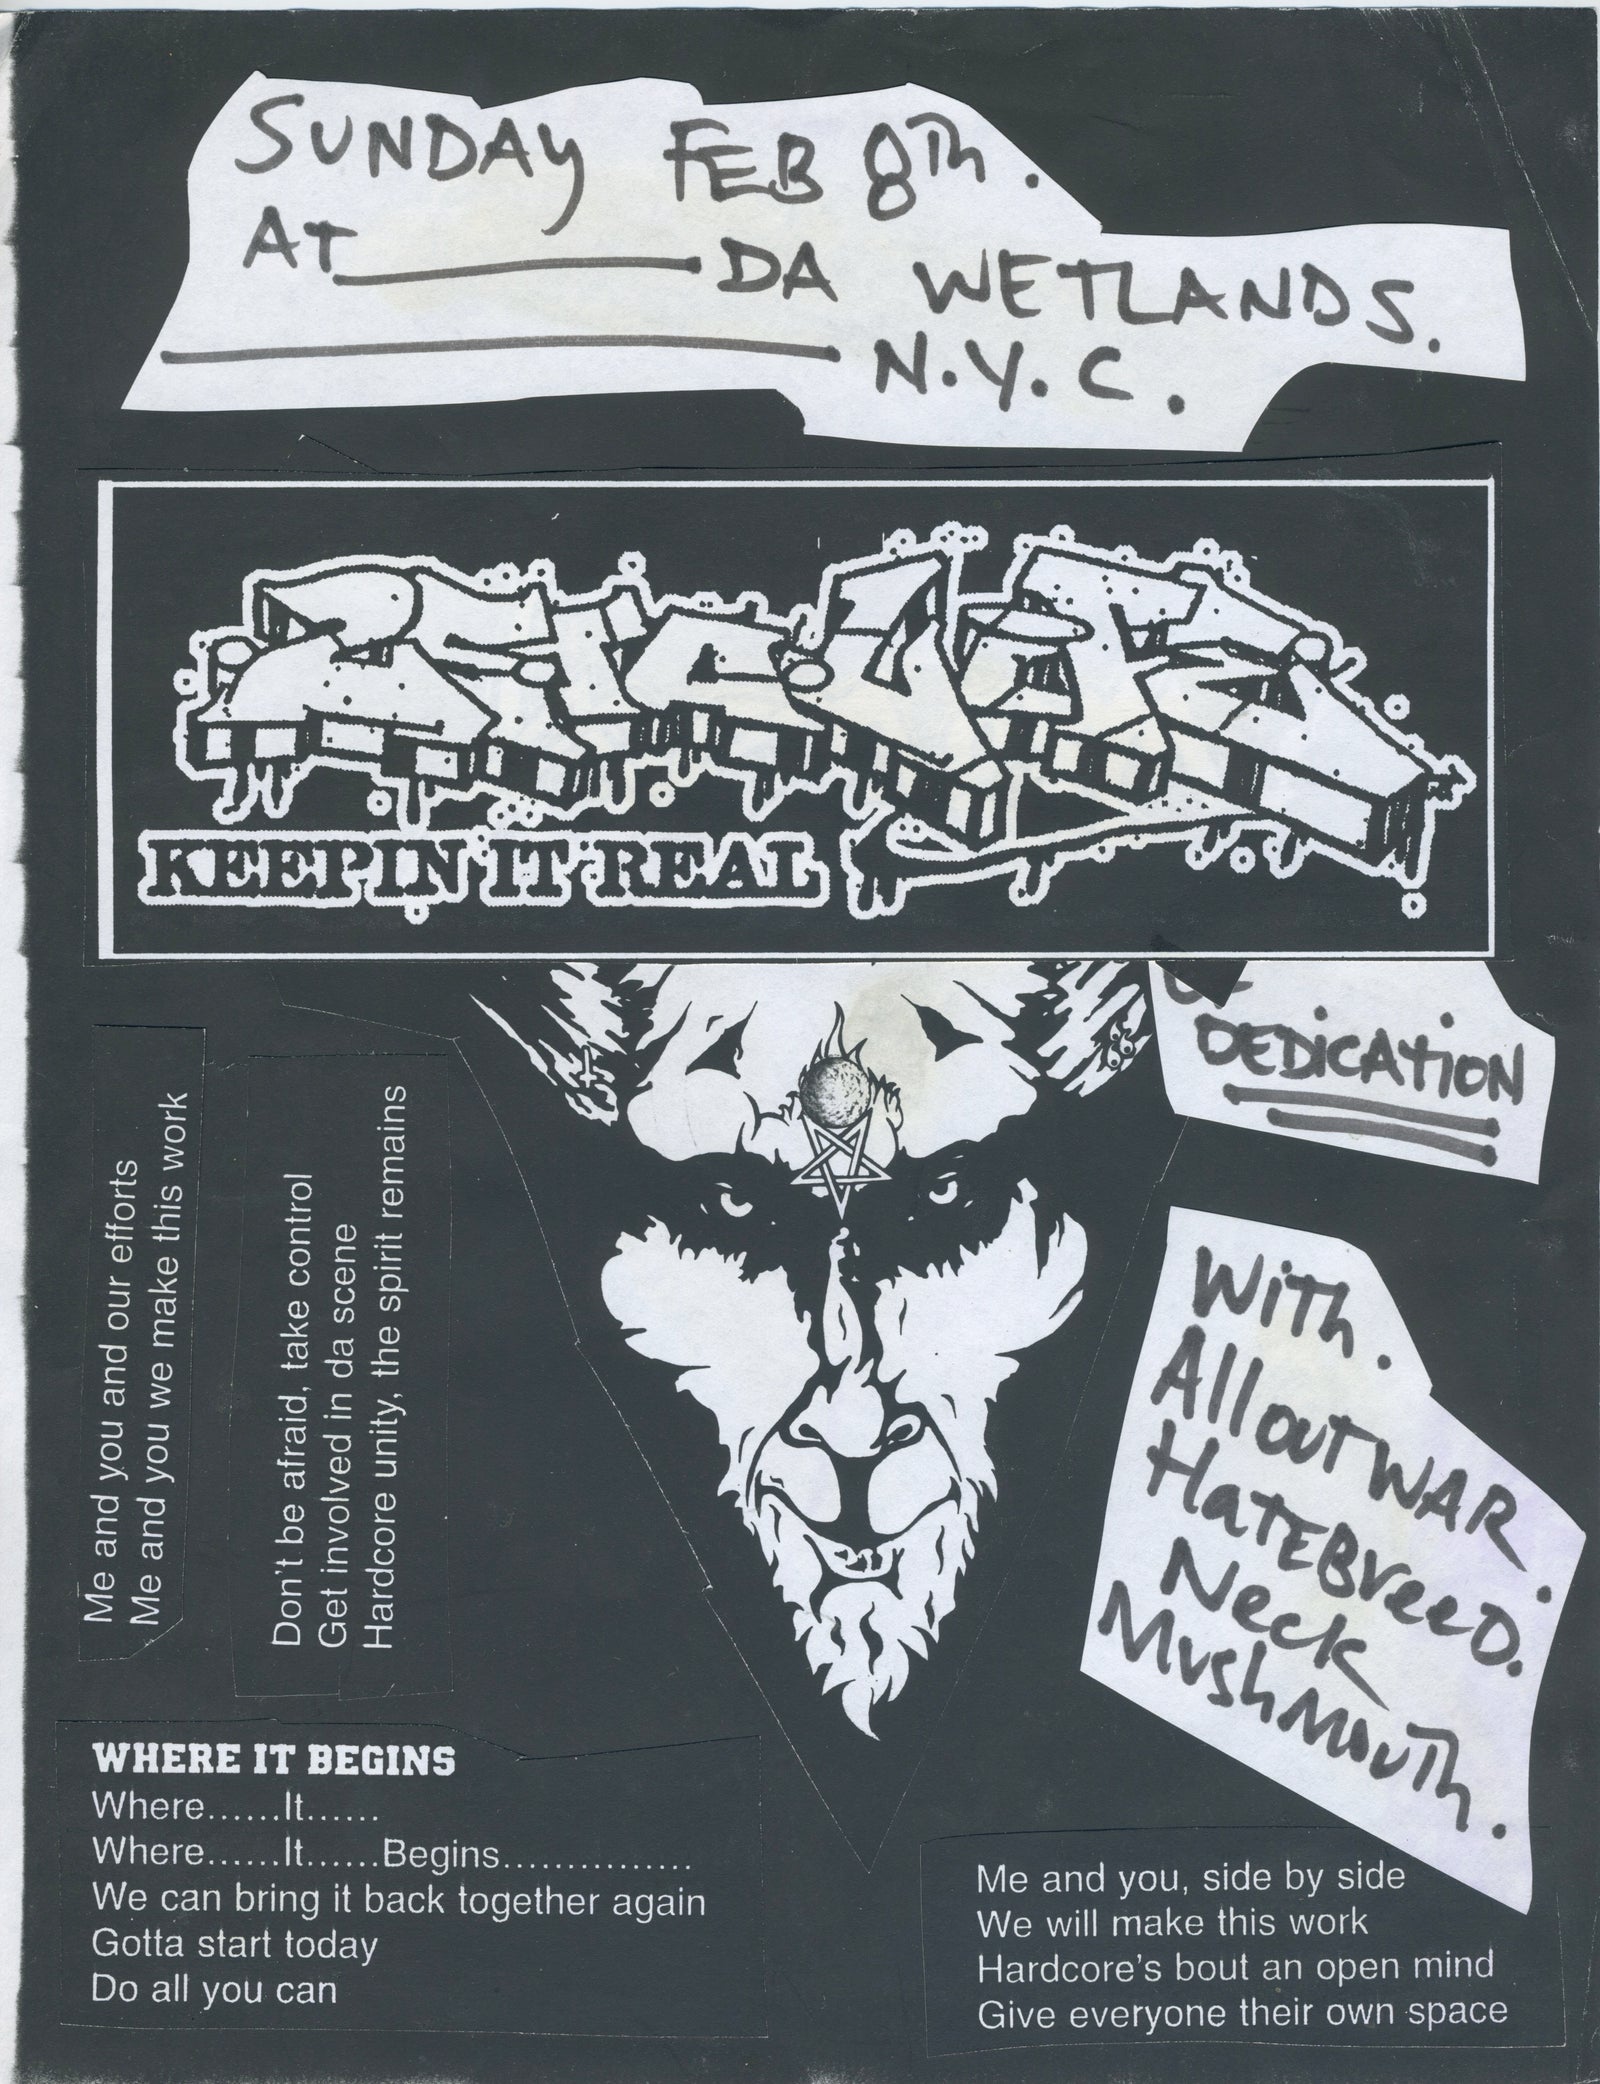 SUNDAY FEB 8Th.
AT DA WETLANDS.
N.Y.C.
KEEPIN IT REAL
DEDiCATiON
Me and you and our efforts
Me and you we make this work
Don't be afraid, take control
Get involved in da scene
Hardcore unity, the spirit remains
With.
All out WAR.
HaTEBreeD.
Neck
MushMouTh.
WHERE IT BEGINS
Where......It......
Where......It......Begins...............
We can bring it back together again
Gotta start today
Do all you can
Me and you, side by side
We will make this work
Hardcore's bout an open mind
Give everyone their own space